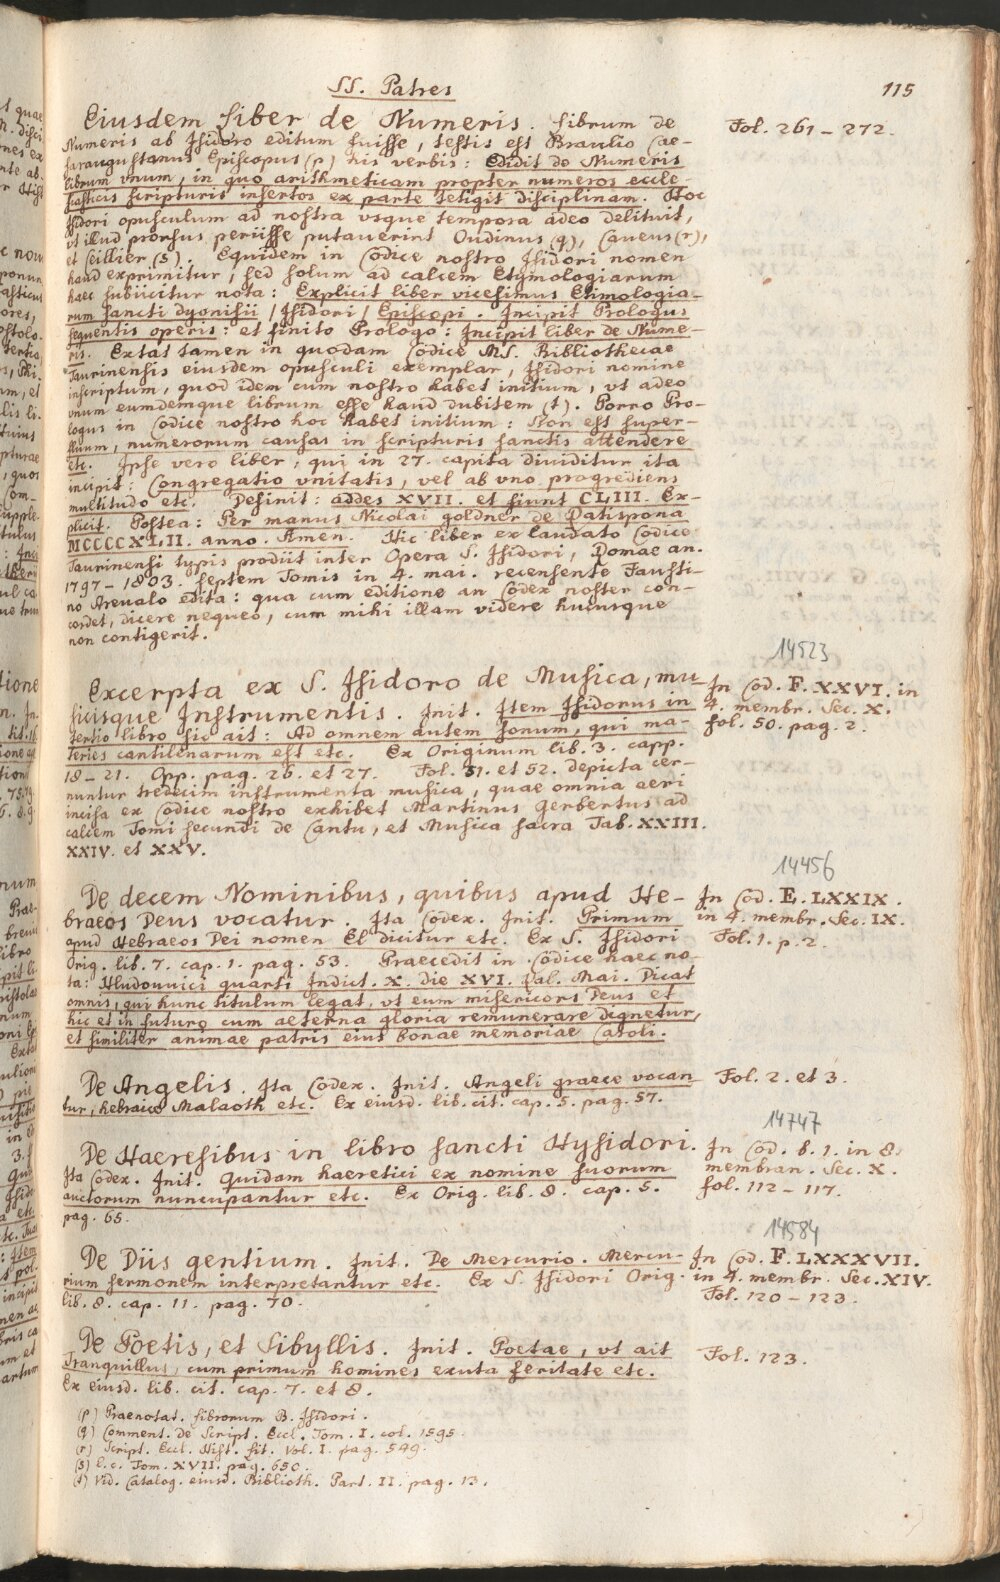 SS. Patres
115
Eiusdem Liber de Numeris. Librum de
Fol. 261 – 272.
Numeris ab Isidoro editum fuisse, testis est Braulio Cae-
saraugustanus Episcopus (p) his verbis: Edidit de Numeris
librum vnum, in quo arithmeticam propter numeros eccle-
siasticis scripturis insertos ex parte tetigit disciplinam. Hoc
Isidori opusculum ad nostra vsque tempora adeo delituit,
vt illud prorsus periisse putauerint Oudinus (q), Caueus (r),
et Ceillier (s). Equidem in Codice nostro Isidori nomen
haud exprimitur, sed solum ad calcem Etymologiarum
haec subiicitur nota: Explicit liber vicesimus Etimologia-
rum sancti dyonisii / Isidori / Episcopi. Incipit Prologus
sequentis operis: et finito Prologo: Incipit liber de Nume-
ris. Extat tamen in quodam Codice MS. Bibliothecae
Taurinensis eiusdem opusculi exemplar, Isidori nomine
inscriptum, quod idem cum nostro habet initium, vt adeo
vnum eumdemque librum esse haud dubitem (t). Porro Pro-
logus in Codice nostro hoc habet initium: Non est super-
fluum, numerorum causas in scripturis sanctis attendere
etc. Ipse vero liber, qui in 27. capita diuiditur ita
incipit: Congregatio vnitatis, vel ab vno progrediens
multitudo etc. Definit: addes XVII. et fiunt CLIII. Ex-
plicit. Postea: Per manus Nicolai goldner de Ratispona
MCCCCXLII. anno. Amen. Hic liber ex laudato Codice
Taurinensi typis prodiit inter Opera S. Isidori, Romae an.
1797 – 1803. septem Tomis in 4. mai. recensente Fausti-
no Areualo edita: qua cum editione an Codex noster con-
cordet, dicere nequeo, cum mihi illam videre hucusque
non contigerit.
14523
Excerpta ex S. Isidoro de Musica, mu-
In Cod. F. XXVI. in
sicisque Instrumentis. Init. Item Isidorus in
4. membr. Sec. X.
tertio libro sic ait: Ad omnem autem sonum, qui ma-
fol. 50. pag. 2.
teries cantilenarum est etc. Ex Originum lib. 3. capp.
18 – 21. Opp. pag. 26. et 27. Fol. 51. et 52. depicta cer-
nuntur tredecim instrumenta musica, quae omnia aeri
incisa ex Codice nostro exhibet Martinus Gerbertus ad
calcem Tomi secundi de Cantu, et Musica sacra Tab. XXIII.
XXIV. et XXV.
14456
De decem Nominibus, quibus apud He-
In Cod. E. LXXIX.
braeos Deus vocatur. Ita Codex. Init. Primum
in 4. membr. Sec. IX.
apud Hebraeos Dei nomen El dicitur etc. Ex S. Isidori
Fol. 1. p. 2.
Orig. lib. 7. cap. 1. pag. 53. Praecedit in Codice haec no-
ta: Hludouuici quarti Indict. X. die XVI. Kal. Mai. Dicat
omnis, qui hunc titulum legat, vt eum misericors Deus et
hic et in futuro cum aeterna gloria remunerare dignetur,
et similiter animae patris eius bonae memoriae Caroli.
De Angelis. Ita Codex. Init. Angeli graece vocan-
Fol. 2. et 3.
tur, hebraice Malaoth etc. Ex eiusd. lib. cit. cap. 5. pag. 57.
14747
De Haeresibus in libro sancti Hysidori.
In Cod. b. 1. in 8.
Ita Codex. Init. Quidam haeretici ex nomine suorum
membran. Sec. X.
auctorum nuncupantur etc. Ex Orig. lib. 8. cap. 5.
fol. 112 – 117.
pag. 65.
14584
De Diis gentium. Init. De Mercurio. Mercu-
In Cod. F. LXXXVII.
rium sermonem interpretantur etc. Ex S. Isidori Orig.
in 4. membr. Sec. XIV.
lib. 8. cap. 11. pag. 70.
Fol. 120 – 123.
De Poetis, et Sibyllis. Init. Poetae, vt ait
Fol. 123.
Tranquillus, cum primum homines exuta feritate etc.
Ex eiusd. lib. cit. cap. 7. et 8.
(p) Praenotat. librorum B. Isidori.
(q) Comment. de Script. Eccl. Tom. I. col. 1595.
(r) Script. Eccl. Hist. lit. Vol. I. pag. 549.
(s) l. c. Tom. XVII. pag. 650.
(t) Vid. Catalog. eiusd. Biblioth. Part. II. pag. 13.